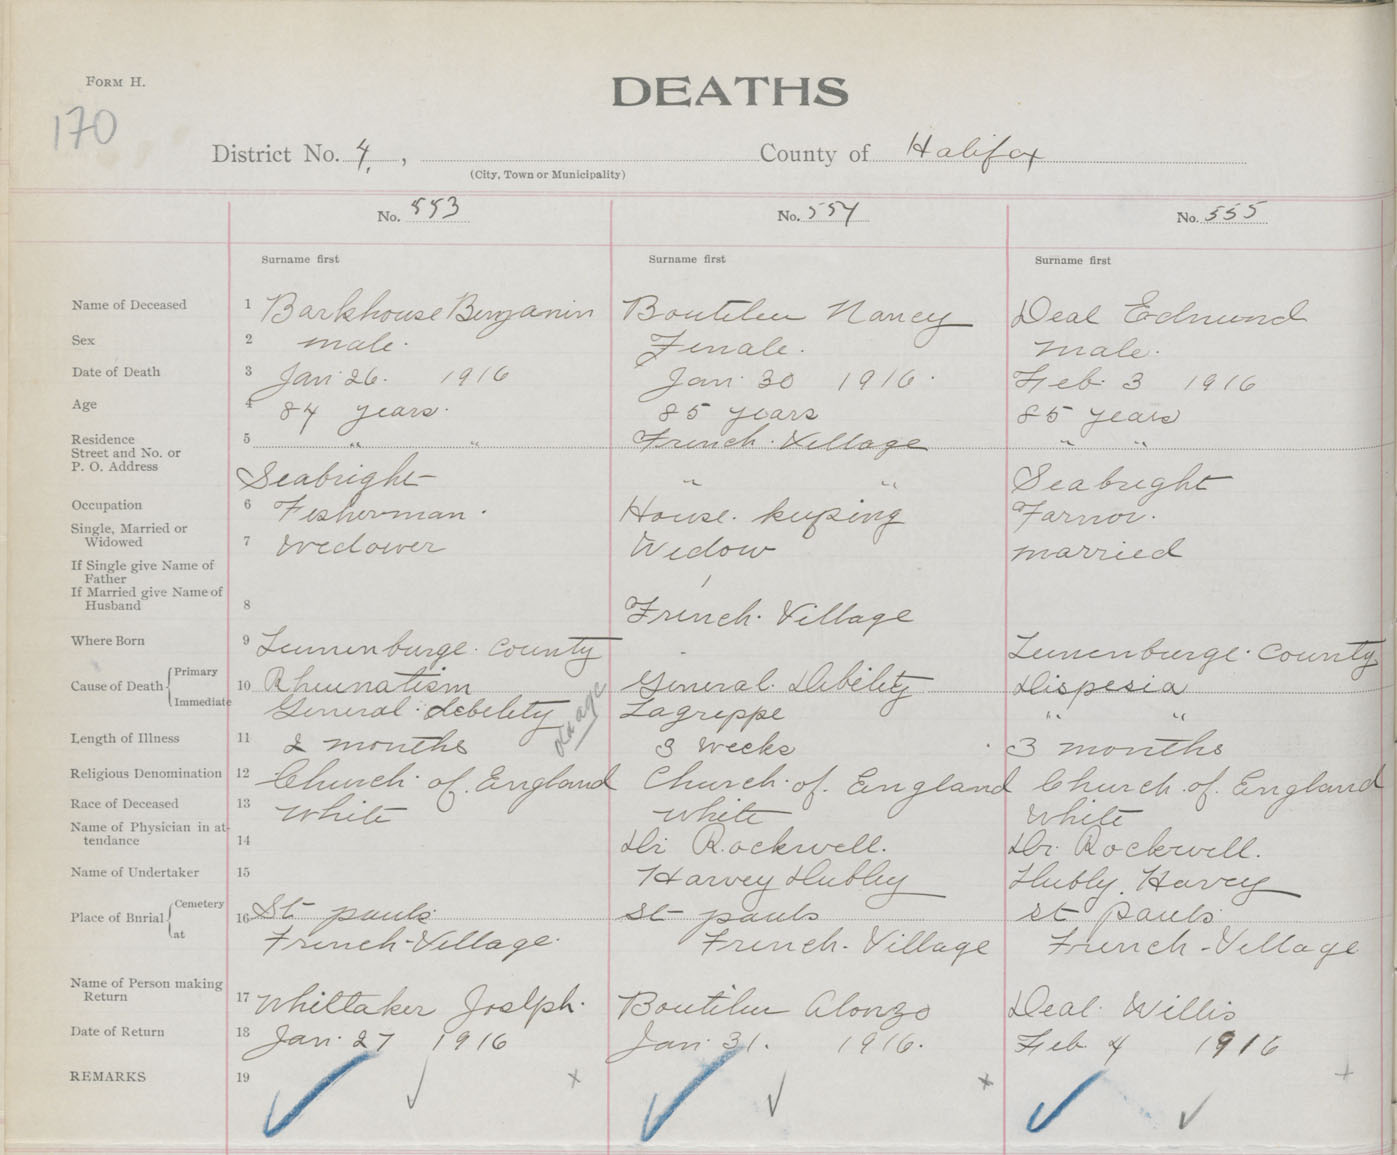 FORM H.
DEATHS
170
District No. 4, , County of Halifax
(City, Town or Municipality)
No. 553 No. 554 No. 555
Surname first Surname first Surname first
Name of Deceased 1 Barkhouse Benjamin Boutilier Nancy Deal Edmund
Sex 2 male. Female. male.
Date of Death 3 Jan 26. 1916 Jan 30 1916. Feb. 3 1916
Age 4 84 years. 85 years 85 years
Residence 5 " " French Village " "
Street and No. or
P. O. Address Seabright " " Seabright
Occupation 6 Fisherman. House keeping Farmer.
Single, Married or
Widowed 7 Widower Widow married
If Single give Name of
Father
If Married give Name of
Husband 8 French Village
Where Born 9 Lunenburge County Lunenburge County
Cause of Death { Primary 10 Rheumatism General Debility Dispesia
Immediate General debelity old age Lagrippe " "
Length of Illness 11 2 months 3 weeks 3 months
Religious Denomination 12 Church of England Church of England Church of England
Race of Deceased 13 White White White
Name of Physician in at-
tendance 14 Dr Rockwell. Dr. Rockwell.
Name of Undertaker 15 Harvey Hubley Hubly, Harvey
Place of Burial { Cemetery 16 St pauls St pauls St Pauls
at French-Village. French-Village French-Village
Name of Person making
Return 17 Whittaker Joseph. Boutilier Alonzo Deal Willis
Date of Return 18 Jan. 27 1916 Jan 31. 1916. Feb 4 1916
REMARKS 19